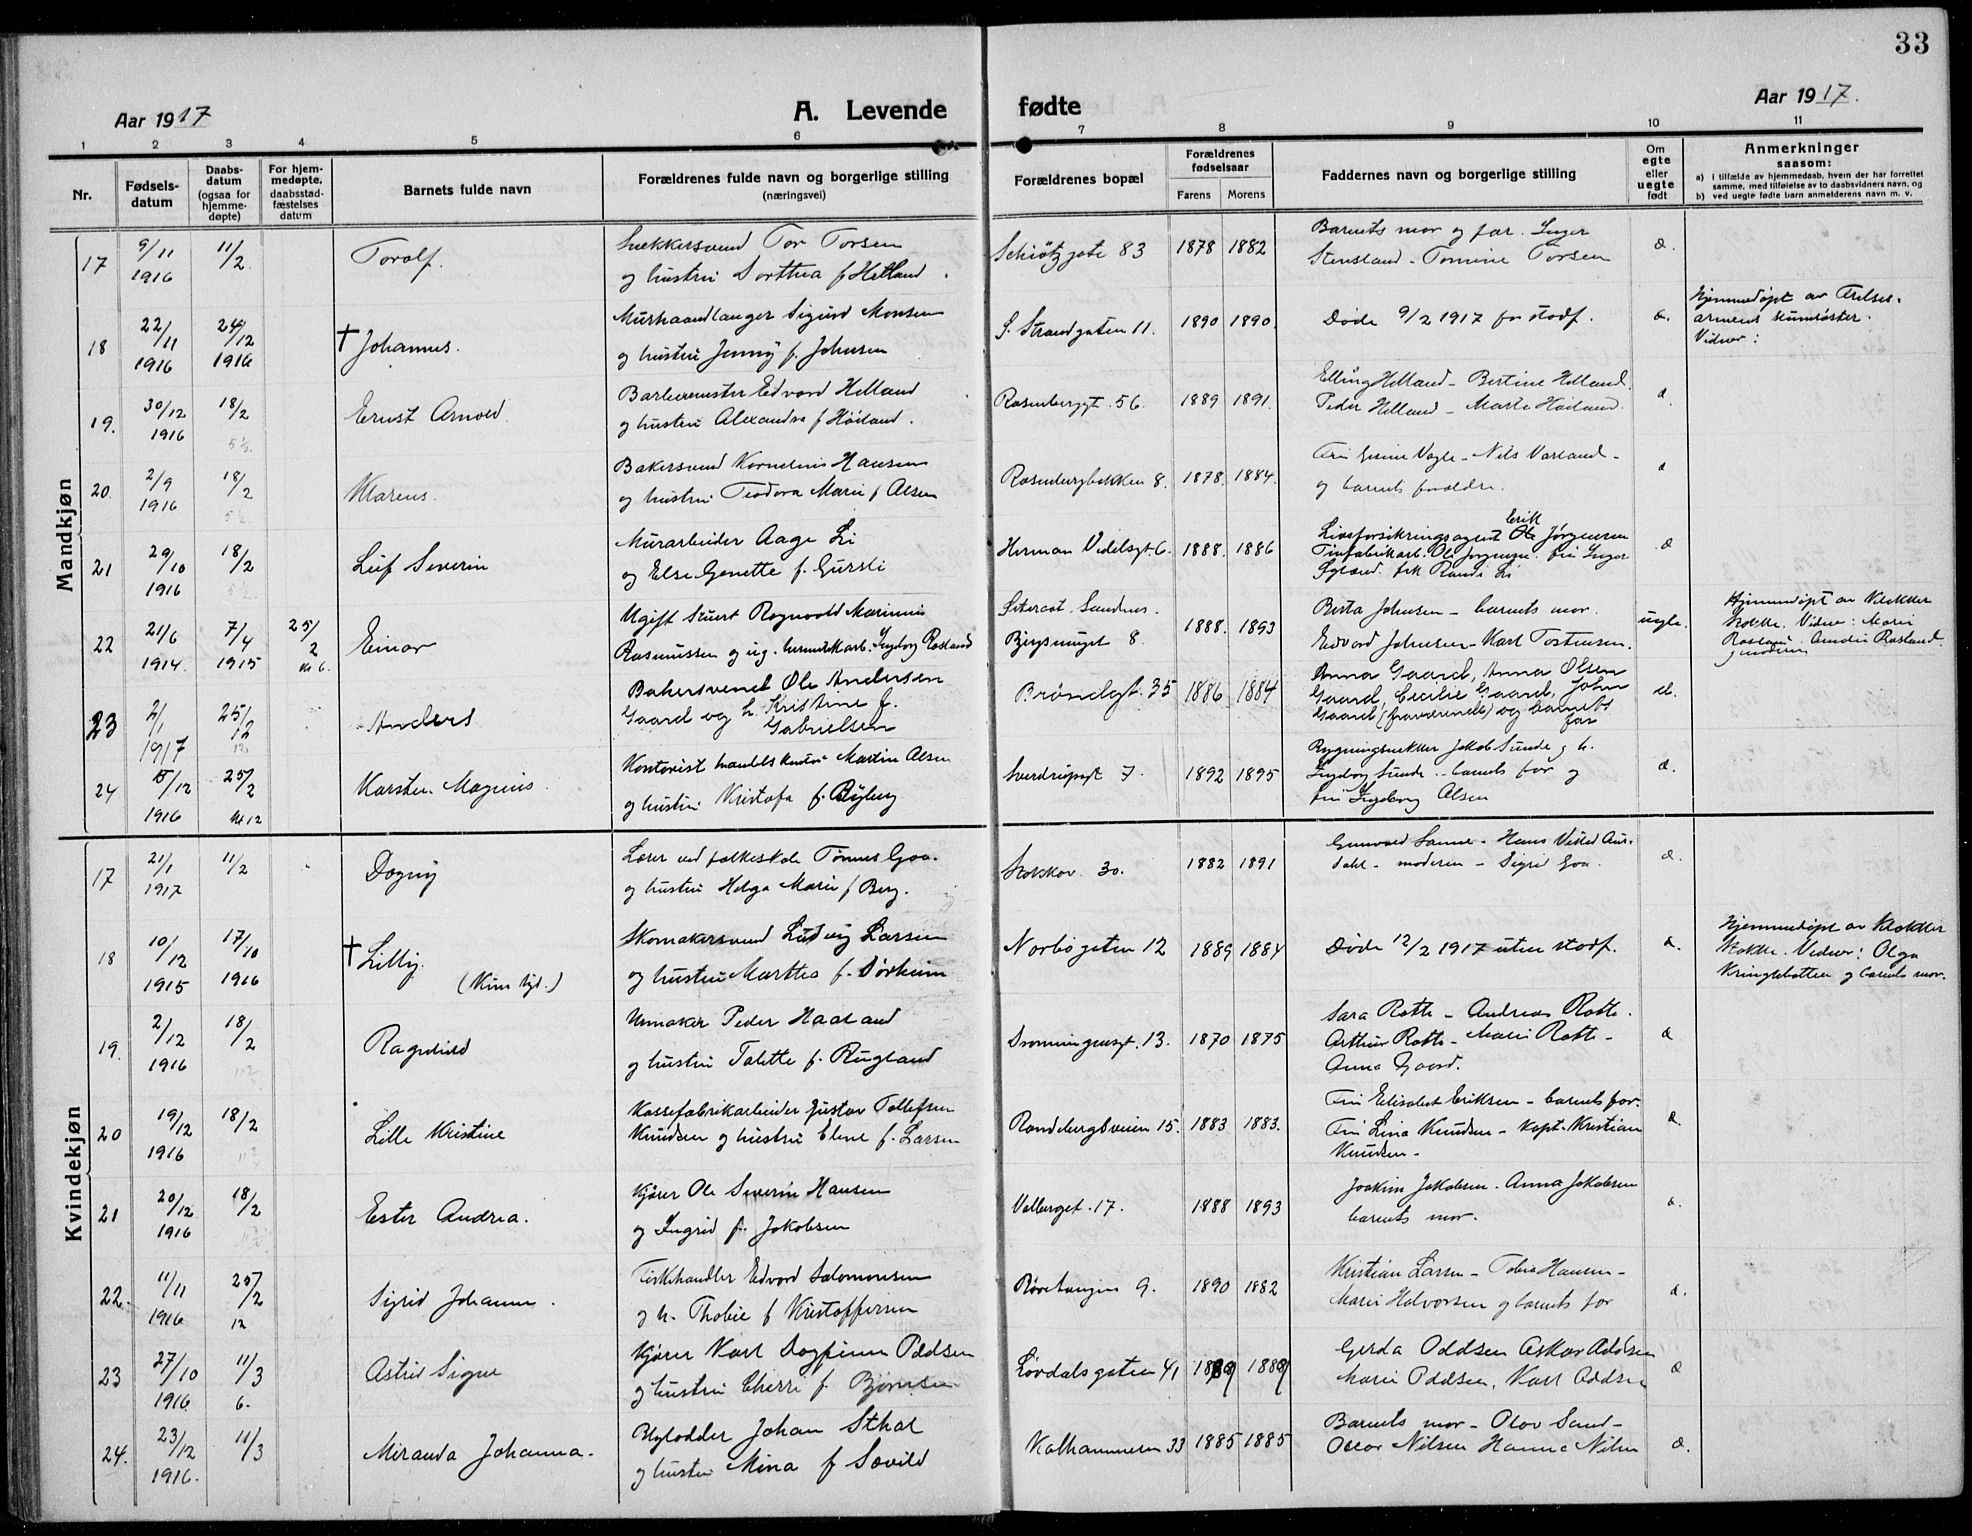 33
Aar 1917
A. Levende fødte
Aar 1917.
1 2 3 4 5 6 7 8 9 10 11
Nr.
Fødsels-
datum
Daabs-
datum
(ogsaa for
hjemme-
døpte)
For hjem-
medøpte,
daabsstad-
fæstelses
datum
Barnets fulde navn
Forældrenes fulde navn og borgerlige stilling
(næringsvei)
Forældrenes bopæl
Forældrenes
fødselsaar
Farens Morens
Faddernes navn og borgerlige stilling
Om
egte
eller
uegte
født
Anmerkninger
saasom:
a) i tilfælde av hjemmedaab, hvem der har forrettet
samme, med tilføielse av to daabsvidners navn, og
b) ved uegte fødte barn anmelderens navn m. v.
Mandkjøn
17 9/11 1916 11/2. Torolf.
Snekkersvend Tor Torsen
og hustru Dorthea f Hetland.
Schiøtzgate 83 1878 1882
Barnets mor og far. Inger
Stensland - Tomine Torsen
18 22/11 1916 24/12 1916 † Johannes.
Murhaandlanger Sigurd Monsen
og hustru Jenny f. Johnsen
S. Strandgaten 11. 1890 1890.
Døde 9/2 1917 før stadf.
Hjemmedøpt av Frelses-
armeens
Vidner:
19. 30/12 1916 18/2 Ernst Arnold.
Barbermester Edvard Helland
og hustru Alexandra f Høiland.
Rosenberggt. 56. 1889 1891.
Elling Helland - Bertine Helland.
Peder Helland - Marta Høiland.
20. 2/9 1916 18/2 Klarens.
Bakersvend Kornelius Hansen
og hustru Teodora Marie f Olsen
Rosenbergbakken 8. 1878. 1884.
Vagle - Nils Varland -
og barnets forældre.
21 29/10 1916 18/2 Leif Severin
Murarbeider Aage Li
og Else Genette f. Gursli
Herman Vedelsgt. 6. 1888. 1886
Erik
Livsforsikringsagent Ole Jørgensen
Tinfabrikarb. Ole Jørgensen. fru Inger
frk Randi Li
22 21/6 1914. 7/4 1915 25/2 kl 6. Einar
Ugift Stuert Ragnvald Marinius
Rasmussen og ug. hermetikarb. Ingborg Rosland
Sandnes.
Bjergsmuget 8 1888. 1893
Berta Johnsen - barnets mor.
Edvard Johnsen - Karl Torstensen.
uegte.
Hjemmedøpt av Klokker
Stokke. Vidner: Marie
Rosland. Amalie Rosland.
23 2/1 1917 25/2 12 Anders
Bakersvend Ole Andersen
Gaard og h. Kristine f.
Gabrielsen
Brøndgt. 35 1886 1884
Anna Gaard, Anna Olsen
Gaard, Cecilie Gaard, John
Gaard (fraværende) og barnets
far
24 15/12 1916 25/2 kl 12 Karsten Magnus.
Kontorist Martin Olsen
og hustru Kristofa f. Byberg
Sverdrupsgt 7. 1892 1895
Jakob Sunde og h.
Ingborg Sunde - barnets far og
fru Ingeborg Olsen
Kvindekjøn
17 21/1 1917 11/2 Dagny
Lærer ved folkeskole Tønnes Goa.
og hustru Helga Marie f Berg.
Stokkav. 30. 1882 1891
Gunvald Sanne - Hans Vilhed Aur-
dahl - moderen - Sigrid Goa.
18 10/12 1915 17/10 1916 † Lilly.
Skomakersvend Ludvig Larsen
og hustru Martha f. Sørheim
Norbøgaten 12 1889 1884
Døde 12/2 1917 uten stadf.
Hjemmedøpt av Klokker
Stokke. Vidner: Olga
Kringlebotten og barnets mor.
19. 2/12 1916 18/2 Ragnhild
Urmaker Peder Haaland
og hustru Talette f. Rugland
Dronningensgt. 13. 1870 1875
Sara Rotte - Andreas Rotte.
Arthur Rotte - Marie Rotte -
Anna Gaard.
20 19/12 1916 18/2 Lille Kristine
Kassefabrikarbeider Gustav Tollefsen
Knudsen og hustru Elene f. Larsen
Randebergsveien 15. 1883 1883.
Fru Elisabet Eriksen - barnets far.
Fru Lina Knudsen - kapt. Kristian
Knudsen -
21 20/12 1916 18/2 Ester Andrea.
Kjører Ole Severin Hansen
og Ingrid f. Jakobsen
Valberget. 17. 1888 1893
Joakim Jakobsen. Anna Jakobsen
barnets mor.
22. 11/11 1916 25/2 12 Sigrid Johanne.
Fiskehandler Edvard Salomonsen
og h. Thobie f Kristoffersen
9. 1890 1882
Kristian Larsen - Tobia Hansen -
Marie Halvorsen og barnets far
23 27/10 1916 11/3 6. Astrid Signe
Kjører Karl Dagfinn Oddsen
og hustru Cherri f. Bjørnsen
Løvdalsgaten 41 1889 1889
Gerda Oddsen Askar Oddsen
Marie Oddsen, Karl Oddsen
24. 23/12 1916. 11/3 Miranda Johanna.
Johan Sthal
og hustru Mina f Søvild
Kalhammeren 33 1885 1885
Barnets mor - Olav Sand -
Oscar Nilsen Hanna Nilsen